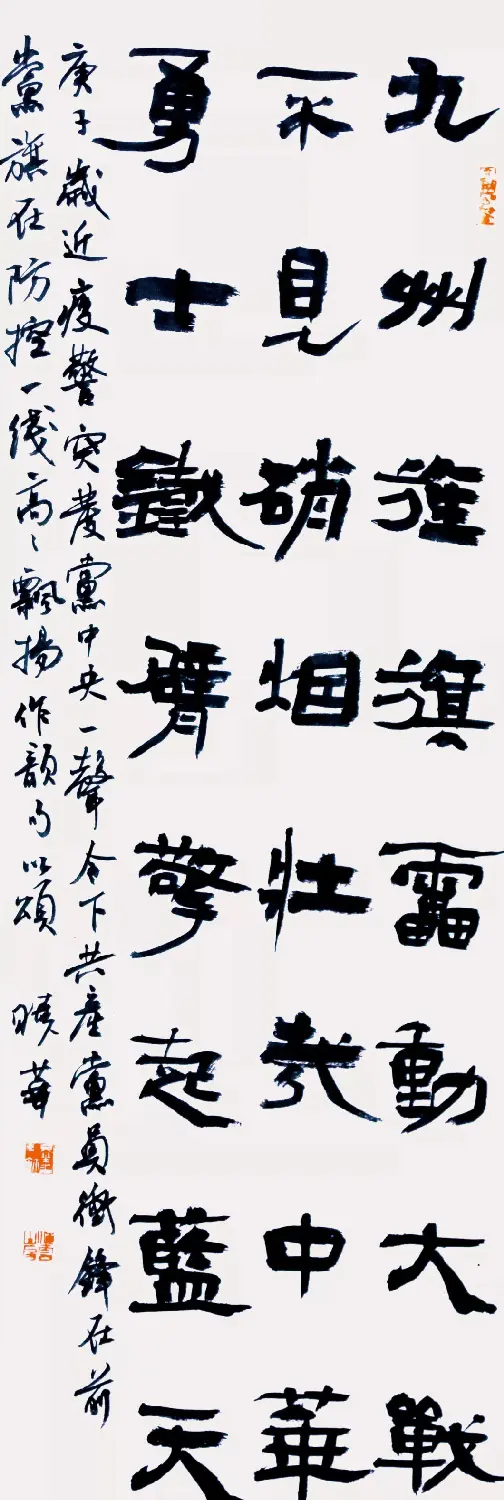 九州旌旗靁動大戰
不見硝烟壯哉中華
勇士鐵臂擎起藍天
庚子歲近疫警突發黨中央一聲令下共產黨員衝鋒在前
黨旗在防控一綫高〻飄揚作韻句以頌 曉華